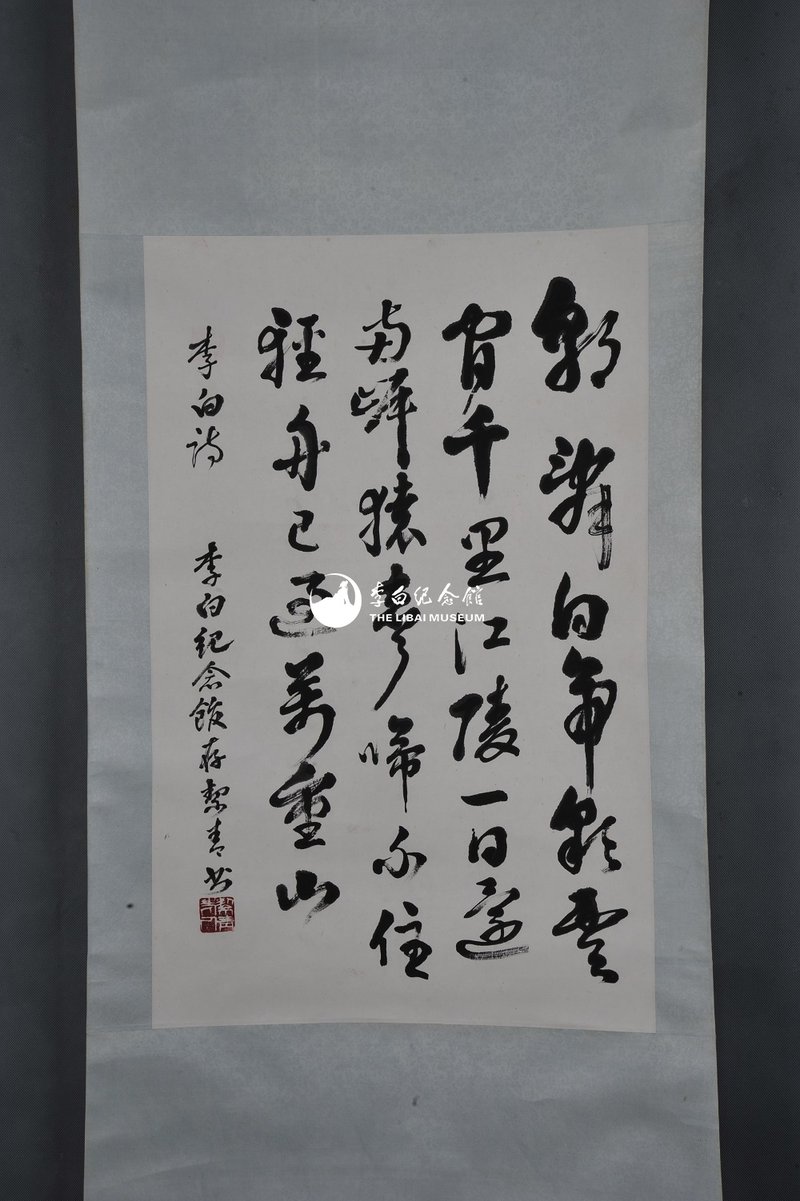 朝辞白帝彩云
间千里江陵一日还
两岸猿声啼不住
轻舟已过万重山
李白诗 李白纪念馆存 洁青书
李白纪念館
THE LIBAI MUSEUM